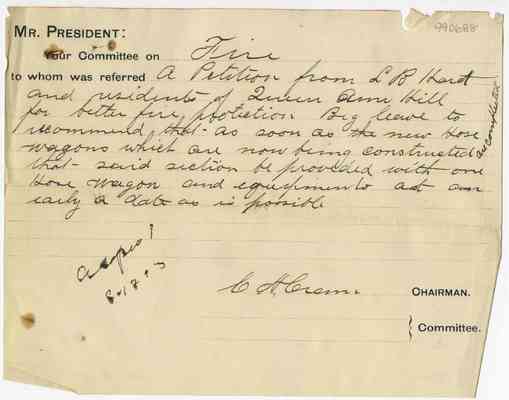 990688
MR. PRESIDENT:
Your Committee on Fire
to whom was referred A Petition from L B Hart
and residents of Queen Ann Hill
for better fire protection Beg leave to
recommend that as soon as the new hose
wagons which are now being constructed are completed
that said section be provided with one
Hose wagon and equipments at an
early a date as is possible
CHAIRMAN.
Committee.